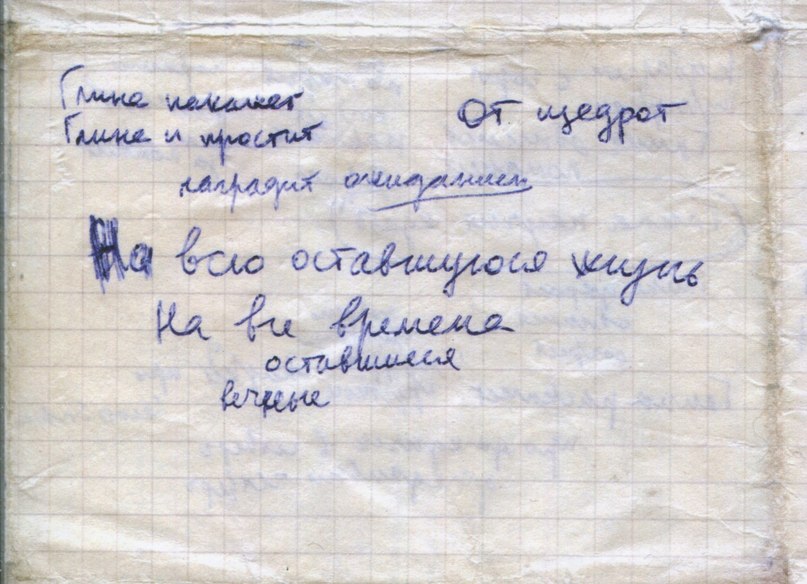 Глина накажет
Глина и простит
От щедрот
наградит ожиданием
На всю оставшуюся жизнь
На все времена
оставшиеся
вечные